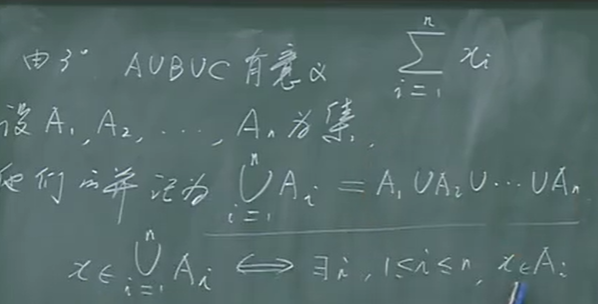 由3° A∪B∪C有意义 \sum_{i=1}^{n} x_i
设A₁, A₂, ⋯, Aₙ为集,
他们的并记为 \bigcup_{i=1}^{n} A_i = A₁∪A₂∪⋯∪Aₙ
x∈\bigcup_{i=1}^{n} A_i ⟺ ∃i, 1≤i≤n, x∈A_i